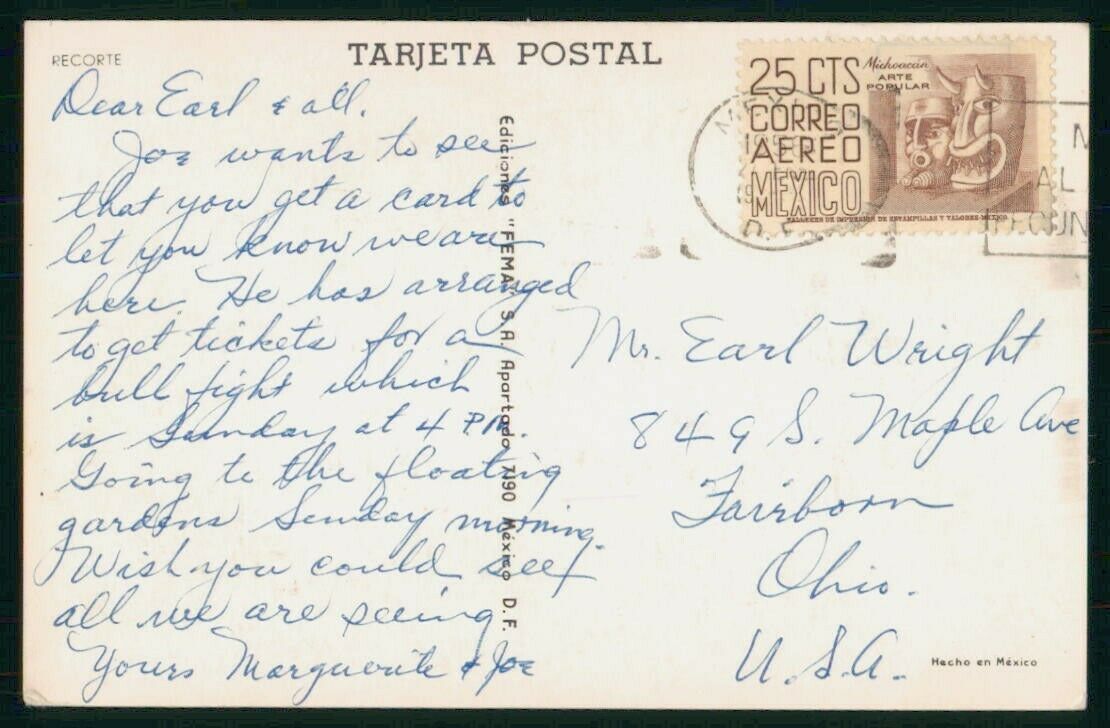 RECORTE
TARJETA POSTAL
Dear Earl & all.
Joe wants to see
that you get a card to
let you know we are
here. He has arranged
to get tickets for a
bull fight which
is Sunday at 4 P.M.
Going to the floating
gardens Sunday morning.
Wish you could see
all we are seeing
Yours Marguerite & Joe
Ediciones "FEMA" S. A. Apartado, 7190 México D. F.
25 CTS
CORREO
AEREO
MEXICO
Michoacán
ARTE
POPULAR
TALLERES DE IMPRESION DE ESTAMPILLAS Y VALORES-MEXICO
D. F.
AL
Mr. Earl Wright
849 S. Maple Ave
Fairborn
Ohio.
U.S.A.
Hecho en México